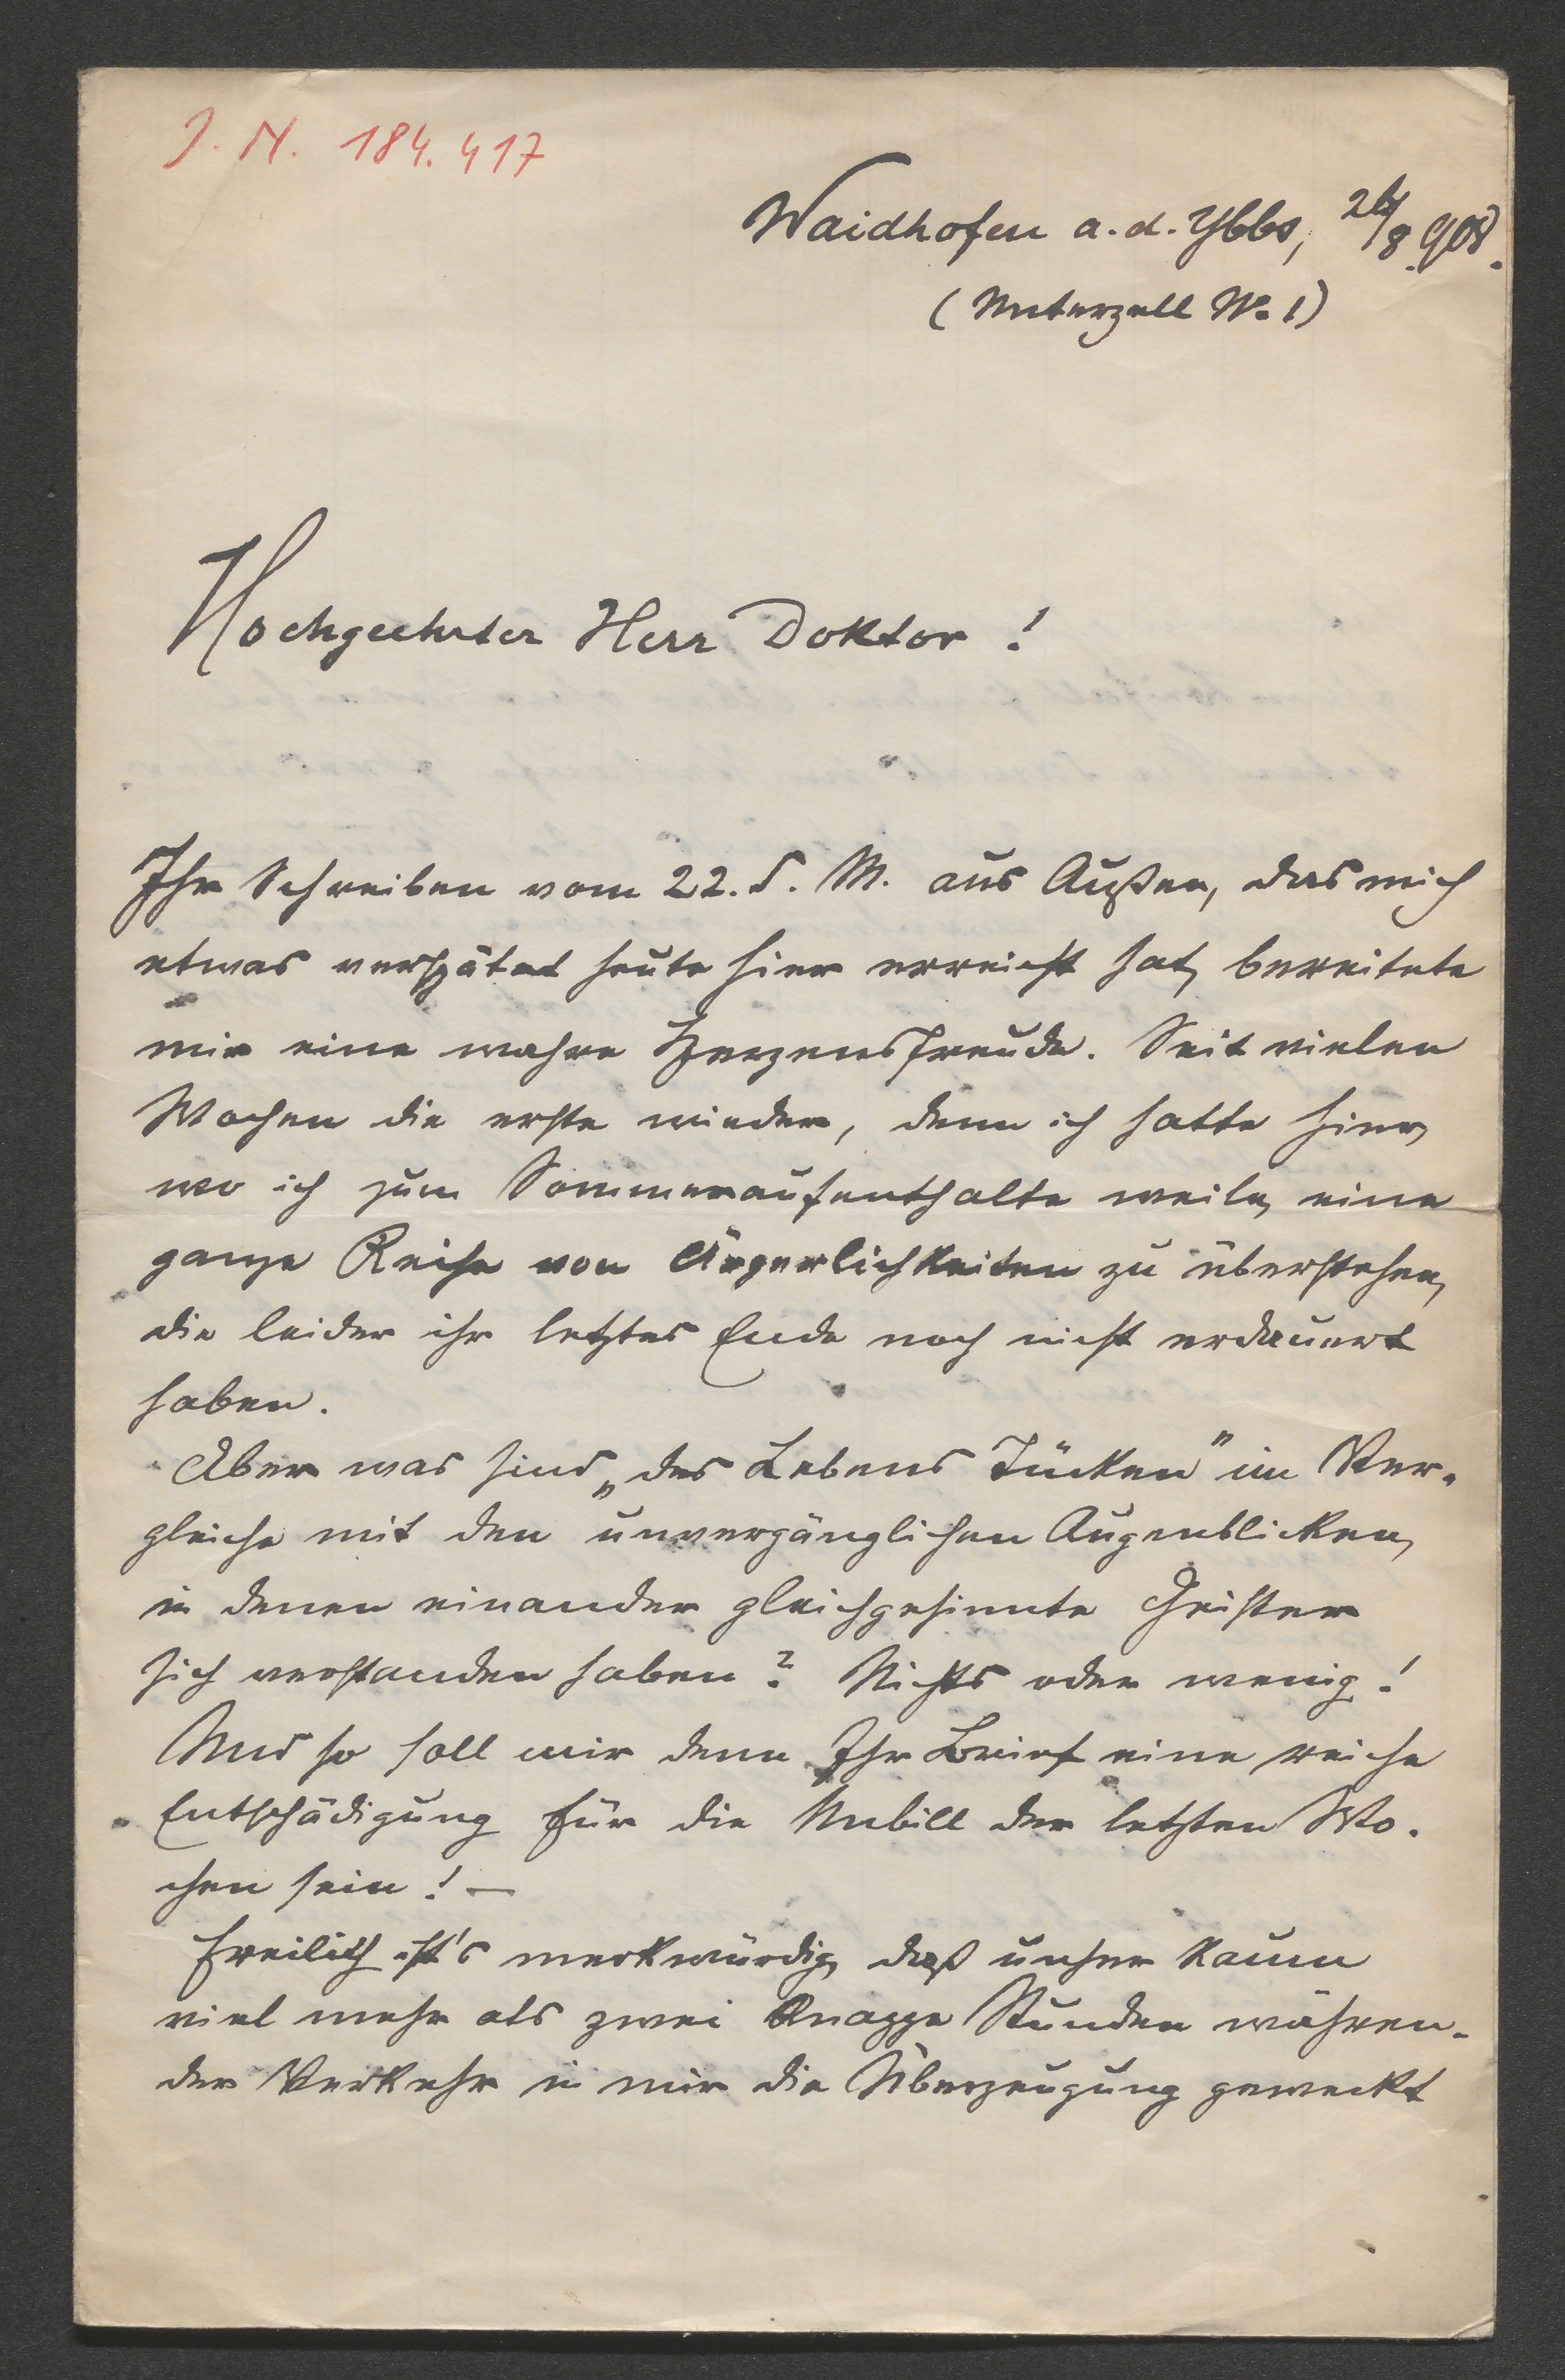 J. N. 184.417
Waidhofen a. d. Ybbs, 26/8. 908.
(Unterzell No 1)
Hochgeehrter Herr Doktor!
Ihr Schreiben vom 22. d. M. aus Außen, das mich
etwas verspätet heute hier erreicht hat, bereitete
mir eine wahre Herzensfreude. Seit vielen
Wochen die erste wieder, denn ich hatte hier,
wo ich zum Sommeraufenthalte weile, eine
ganze Reihe von Ärgerlichkeiten zu überstehen,
die leider ihr letztes Ende noch nicht erdauert
haben.
Aber was sind „des Lebens Tücken" im Ver-
gleiche mit den unvergänglichen Augenblicken,
in denen einander gleichgesinnte Geister
sich verstanden haben? Nichts oder wenig!
Und so soll mir denn Ihr Brief eine reiche
Entschädigung für die Unbill der letzten Wo-
chen sein! —
Freilich ist's merkwürdig, daß unser kaum
viel mehr als zwei knappe Stunden währen-
der Verkehr in mir die Überzeugung geweckt